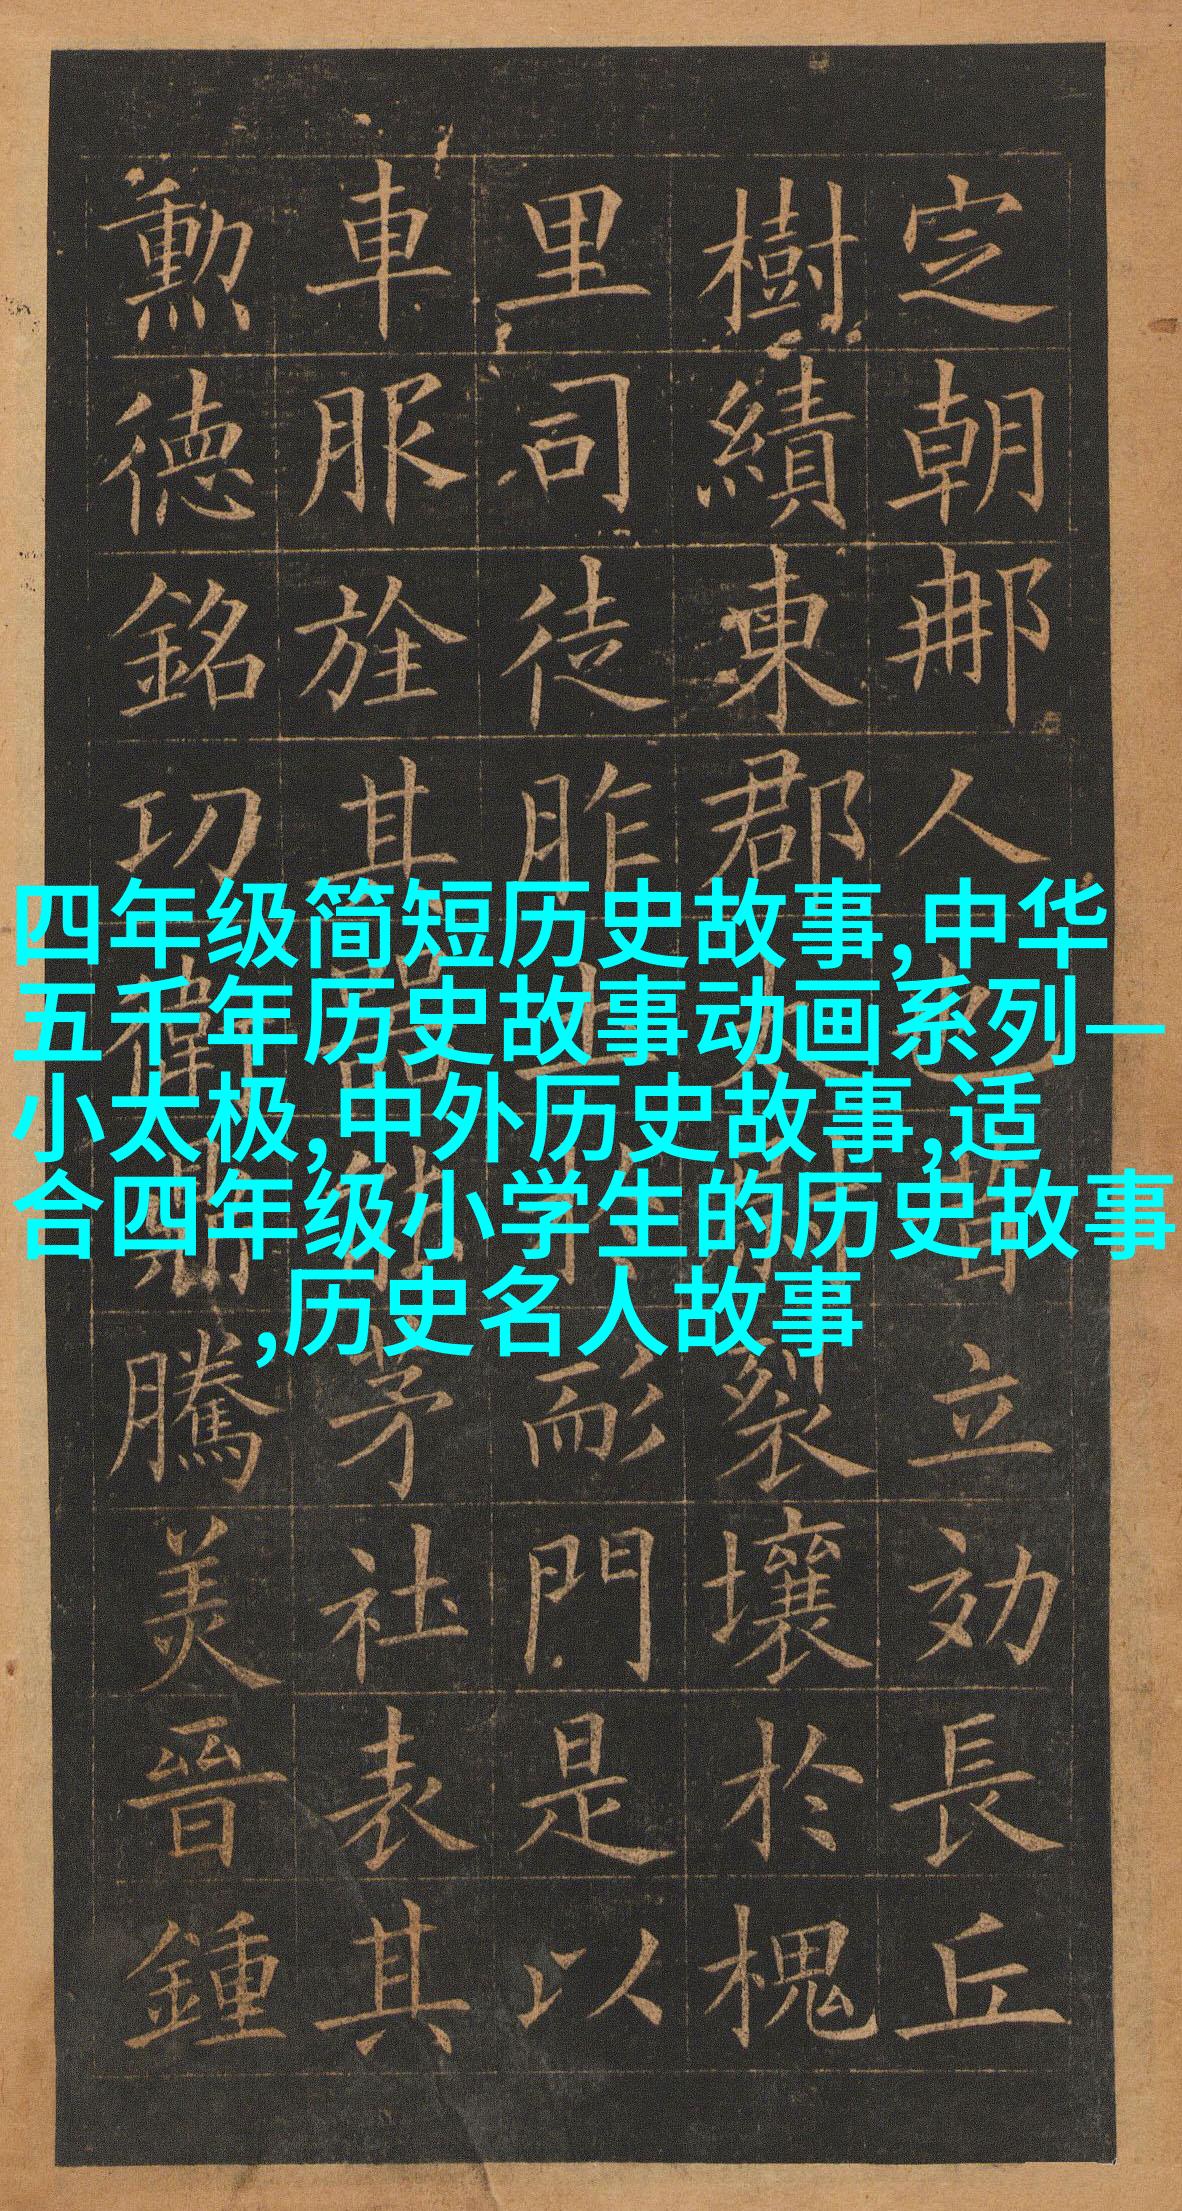 四年级简短历史故事,中华
五千年历史故事动画系列—
小太极,中外历史故事,适
合四年级小学生的历史故事
,历史名人故事
定朝那人也昔立効長丘
樹績東郡太尉裂壤於槐
里司徒胙土於耏門是以
車服旌其器能茅社表其
勲德銘功衛鼎騰美晉鍾